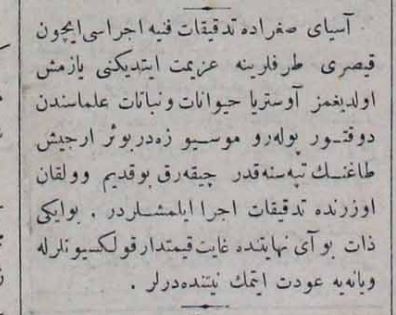 آسیای صغراده تدقیقات فنیه اجراسی ایچون
قیصری طرفلرینه عزیمت ایتدیكنی یازمش
اولدیغمز آوستریا حیوانات ونباتات علماسندن
دوقتور پوله رو موسیو زه در بوئر ارجیش
طاغنك تپه سنه قدر چیقه رق بوقدیم وولقان
اوزرنده تدقیقات اجرا ایلمشلردر . بوایكی
ذات بو آی نهایتنده غایت قیمتدار قولكسیونلرله
ویانه یه عودت ایتمك نیتنده درلر .